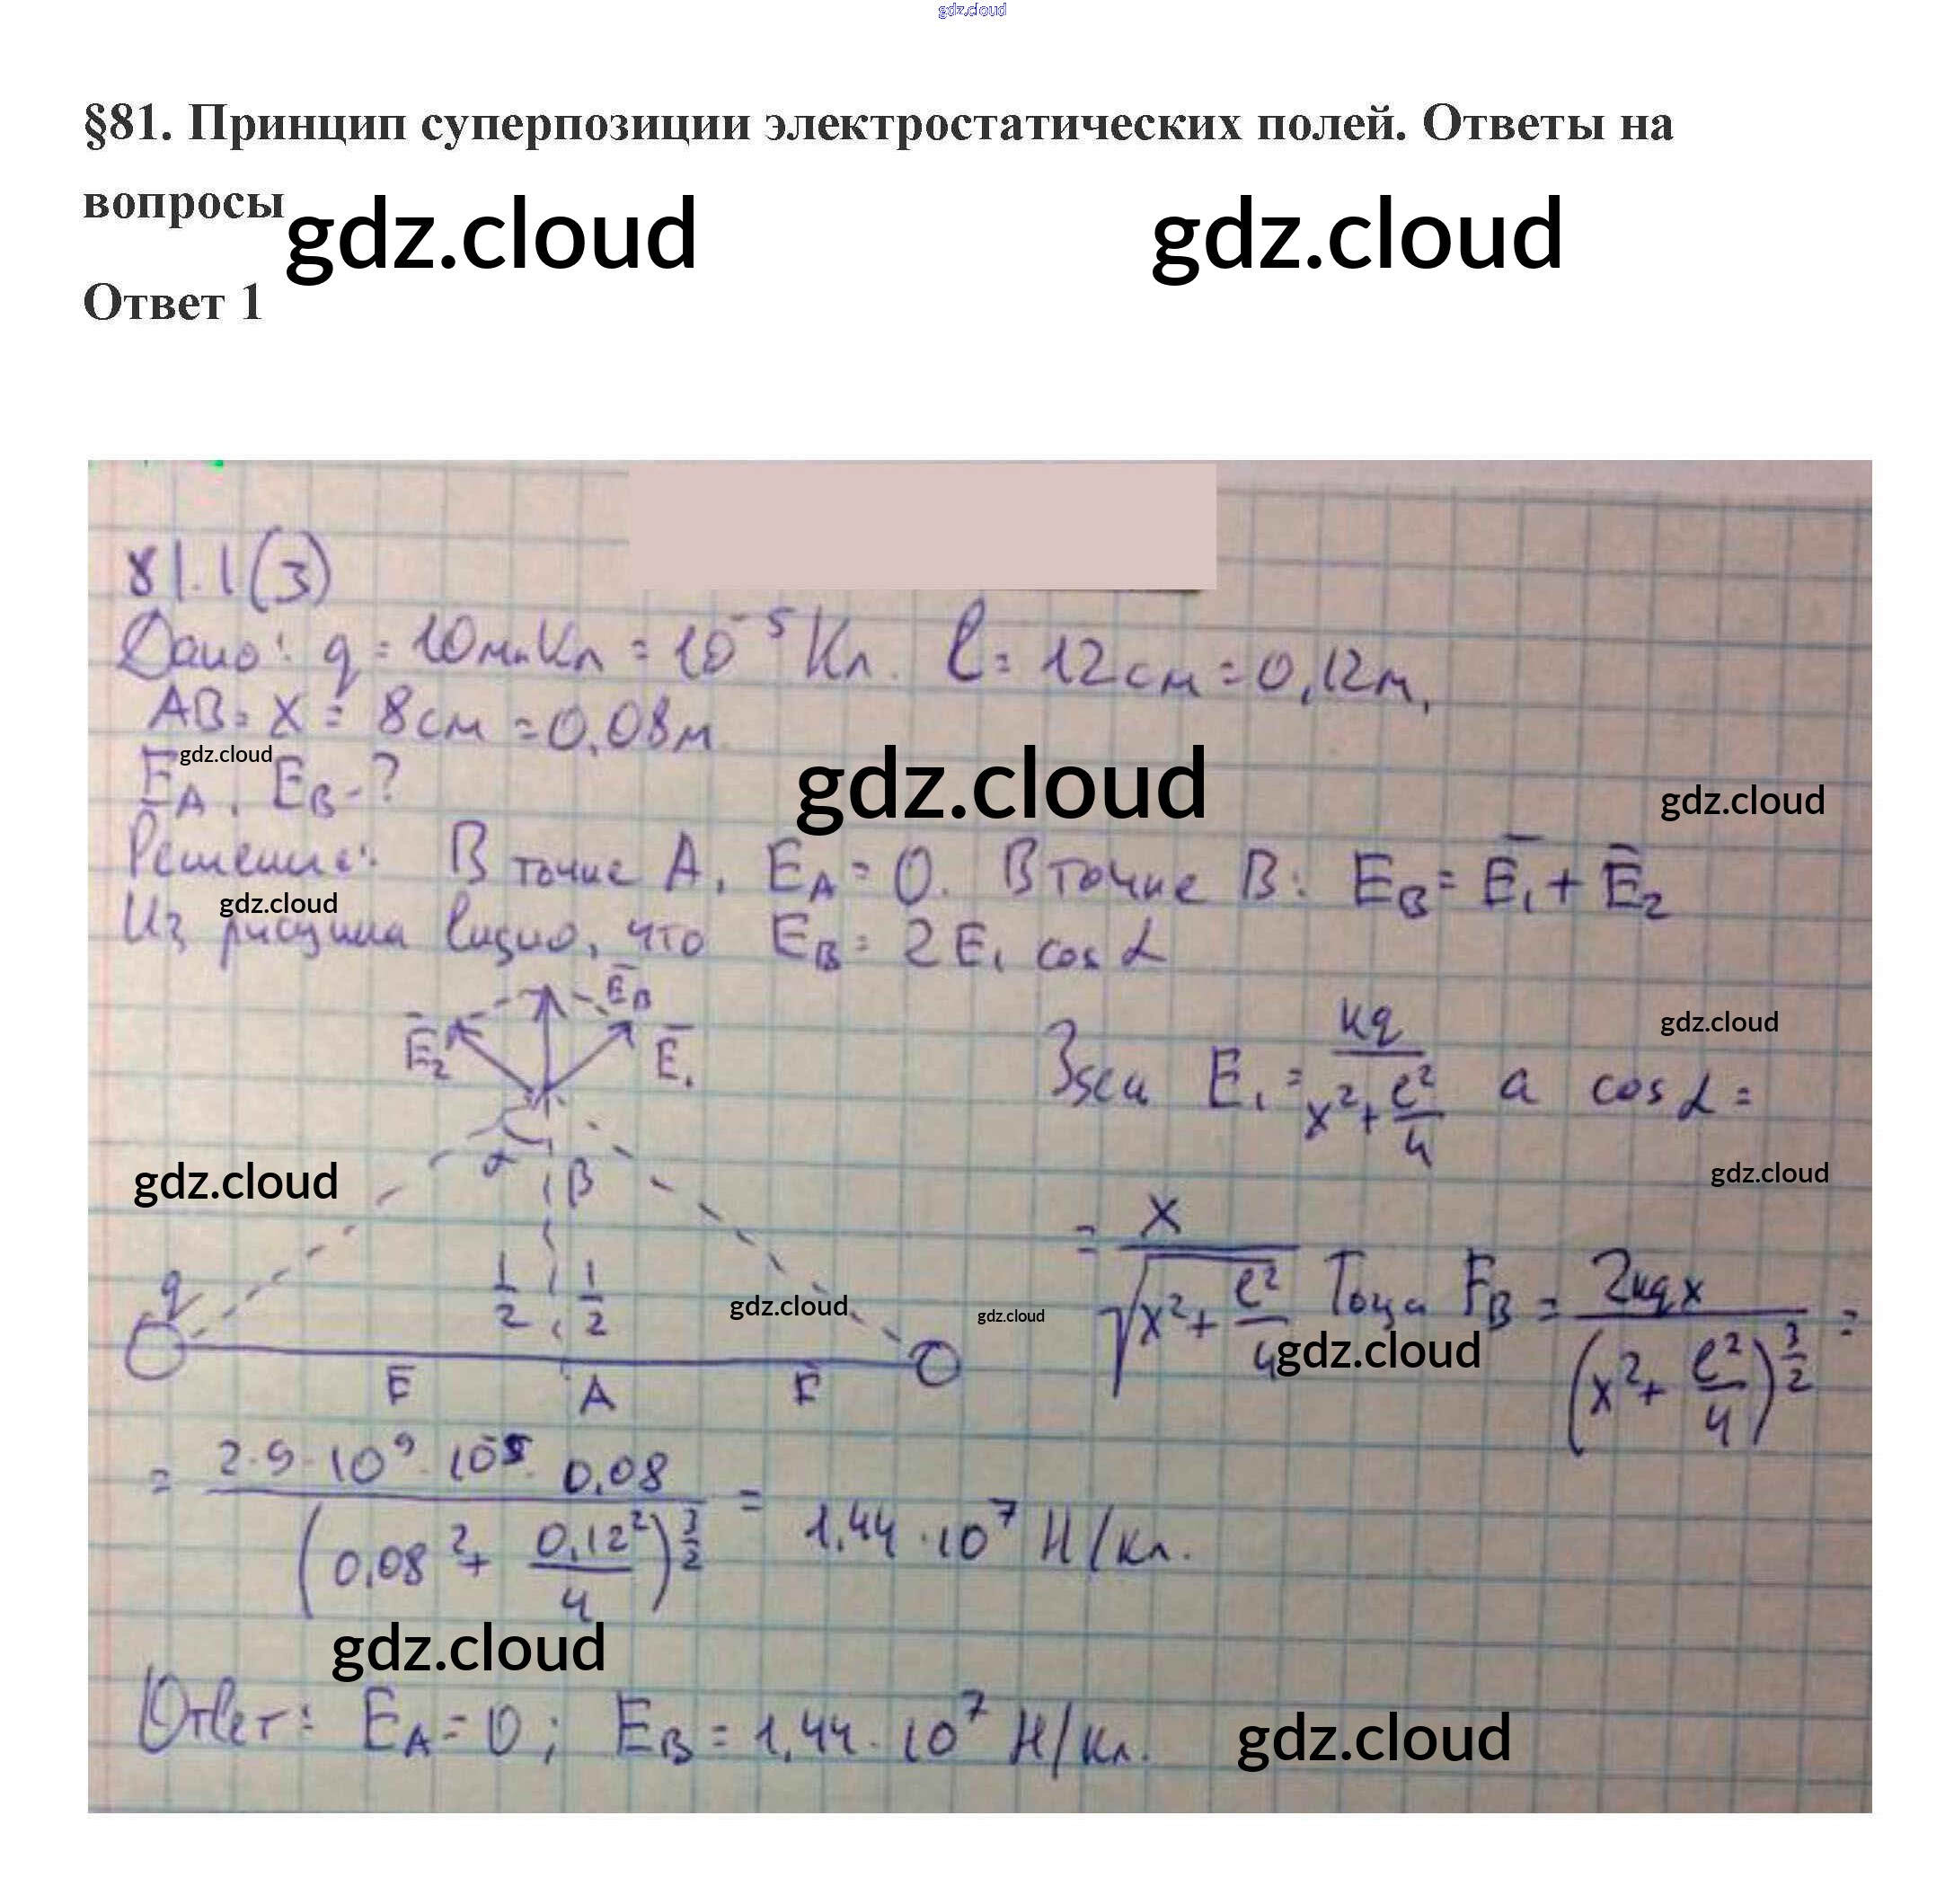 gdz.cloud
§81. Принцип суперпозиции электростатических полей. Ответы на
вопросы
gdz.cloud gdz.cloud
Ответ 1
81.1(3)
Дано: q = 10мкКл = 10⁻⁵ Кл. l = 12см = 0,12м,
AB = x = 8см = 0,08м
gdz.cloud
E_A, E_B - ?
gdz.cloud
gdz.cloud
Решение: В точке A, E_A = 0. В точке B: E_B = E̅₁ + E̅₂
gdz.cloud
Из рисунка видно, что E_B = 2E₁ cos α
E̅_B
E̅₂ E̅₁
gdz.cloud
E₁ = kq / (x² + l²/4) а cos α =
α B
gdz.cloud
gdz.cloud
= x / √(x² + l²/4) Тогда E_B = 2kqx / (x² + l²/4)^(3/2) =
q 1/2 1/2
gdz.cloud
gdz.cloud
gdz.cloud
E̅ A E̅
= 2·9·10⁹·10⁻⁵·0,08 / (0,08² + 0,12²/4)^(3/2) = 1,44·10⁷ Н/Кл.
gdz.cloud
Ответ: E_A = 0; E_B = 1,44·10⁷ Н/Кл.
gdz.cloud